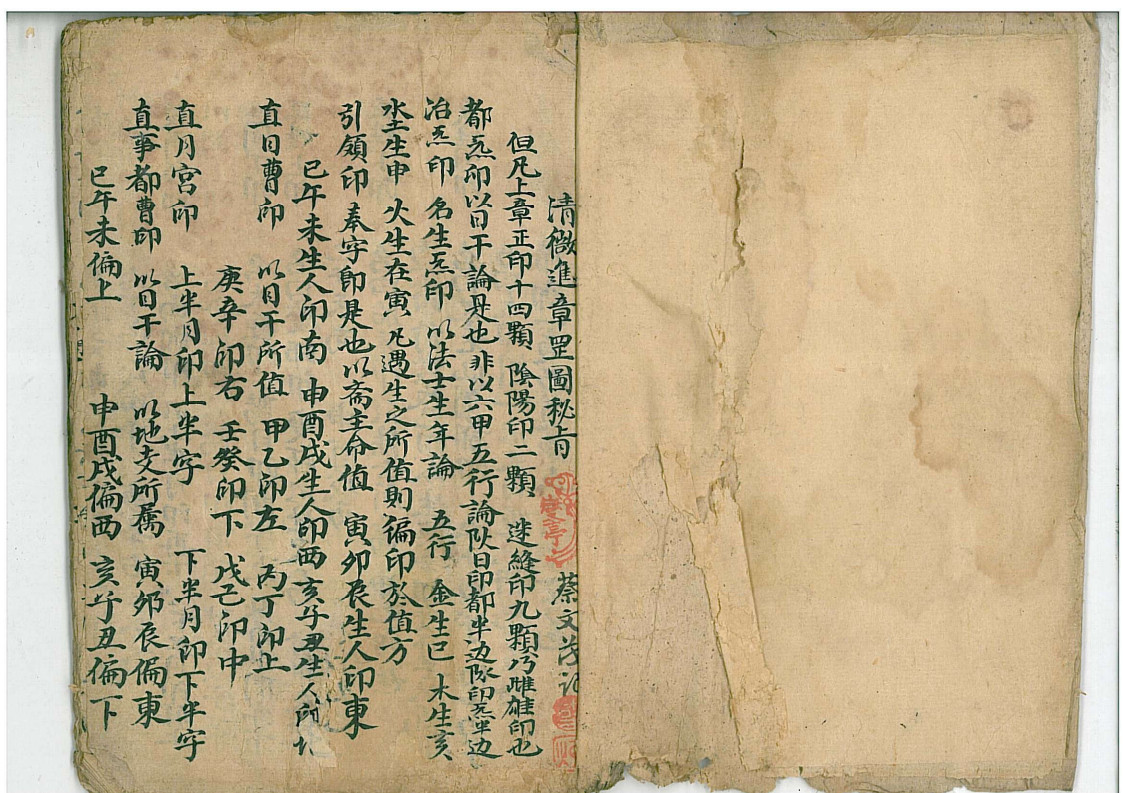 清微進章罡圖秘旨 蔡文茂記
但凡上章正印十四顆 陰陽印二顆 迷縫印九顆乃雌雄印也
都炁印以日干論是也 非以六甲五行論阦日印都半边阴印炁半边
冶炁印 名生炁印 以法士生年論 五行 金生巳 木生亥
水土生申 火生在寅 凡遇生之所值則偏印於值方
引領印 奉字即是也以斎主命值 寅卯辰生人印東
巳午未生人印南 申酉戌生人印西 亥子丑生人所
直日曹印 以日干所值 甲乙印左 丙丁印上
庚辛印右 壬癸印下 戊己印中
直月宮印 上半月印上半字 下半月印下半字
直事都曹印 以日干論 以地支所属 寅卯辰偏東
巳午未偏上 申酉戌偏西 亥子丑偏下